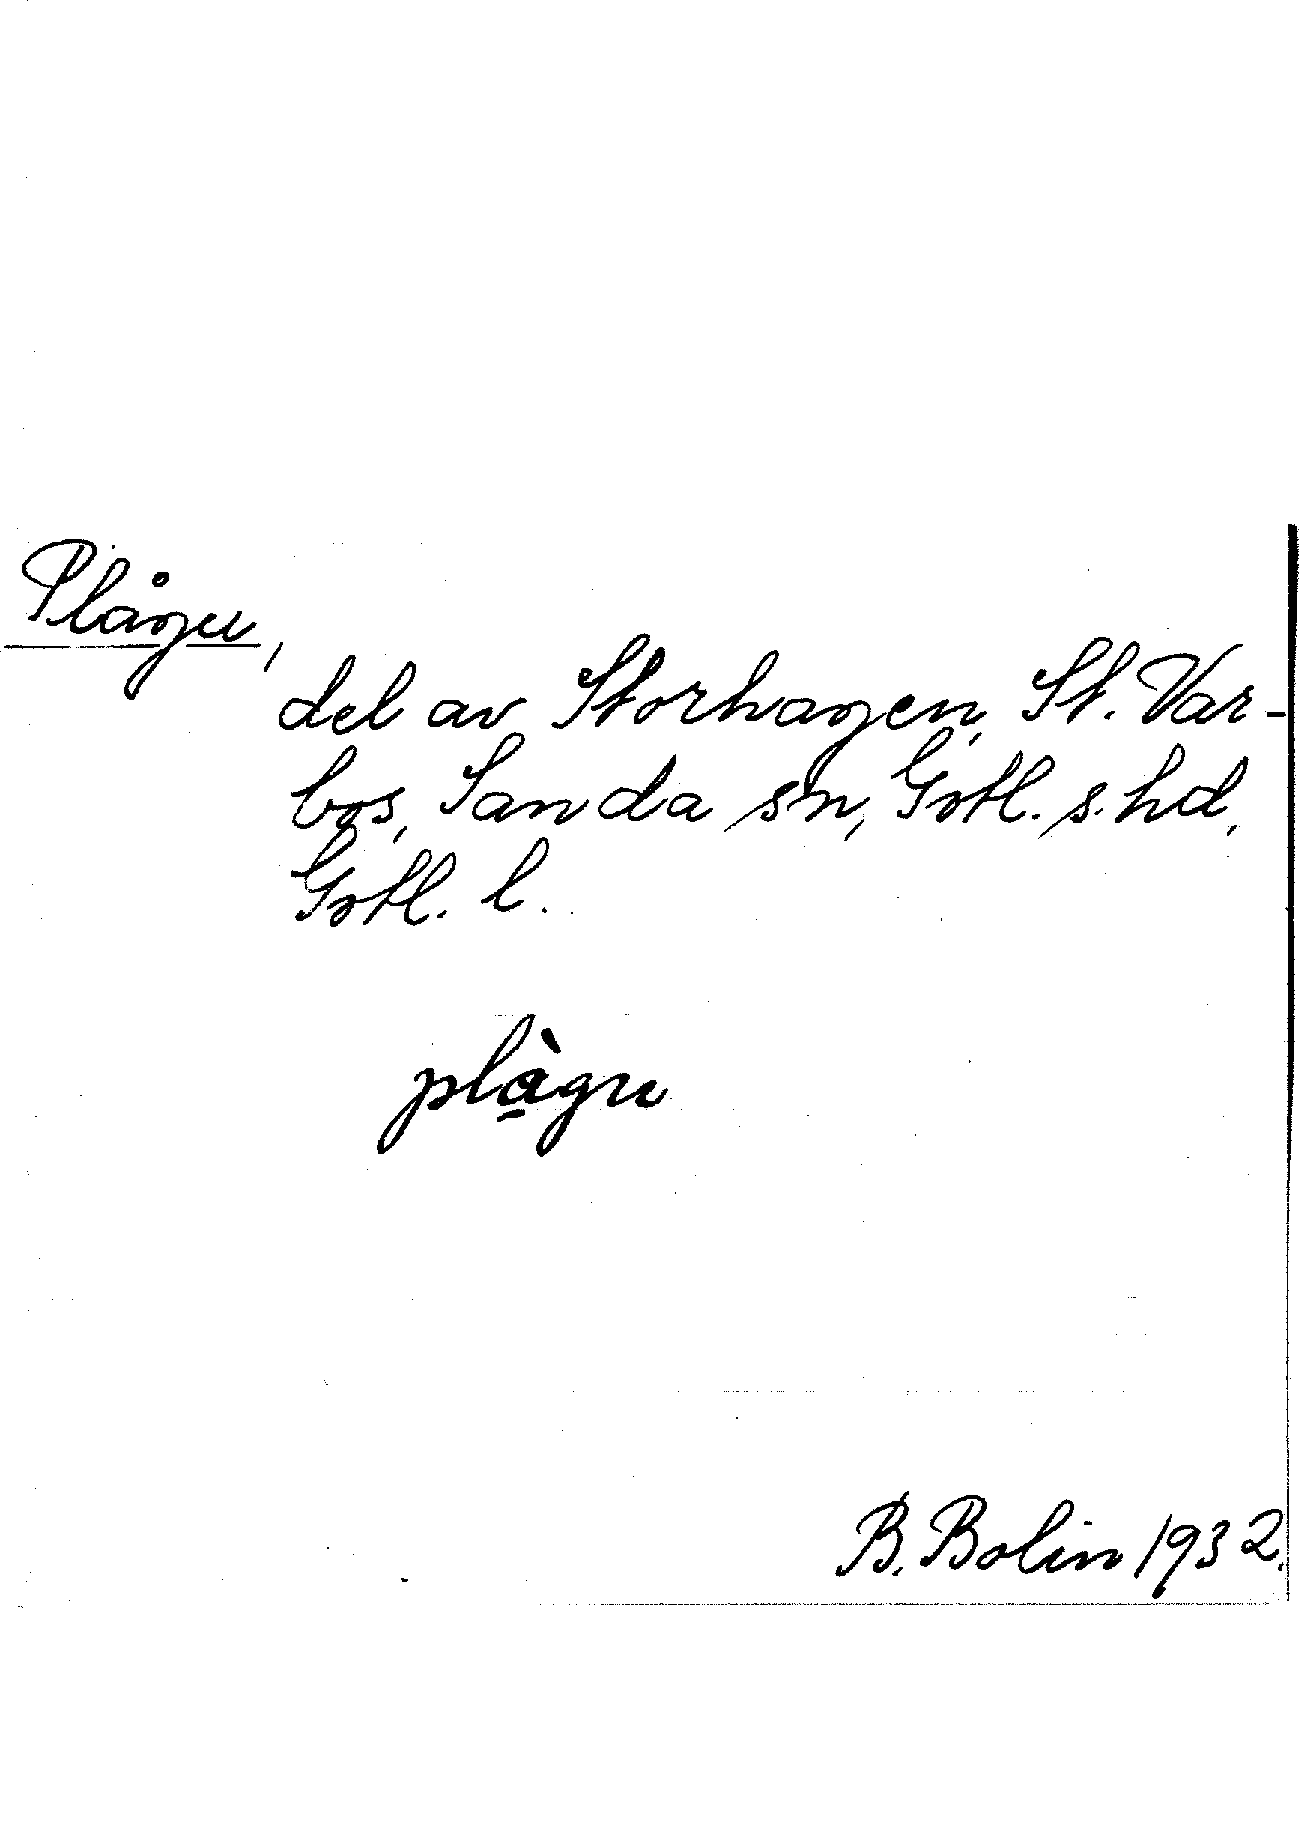 Plågu,
del av Storhagen, St. Var-
bos, Sanda sn, Gotl. s. hd,
Gotl. l.
plàgu
B. Bolin 1932.